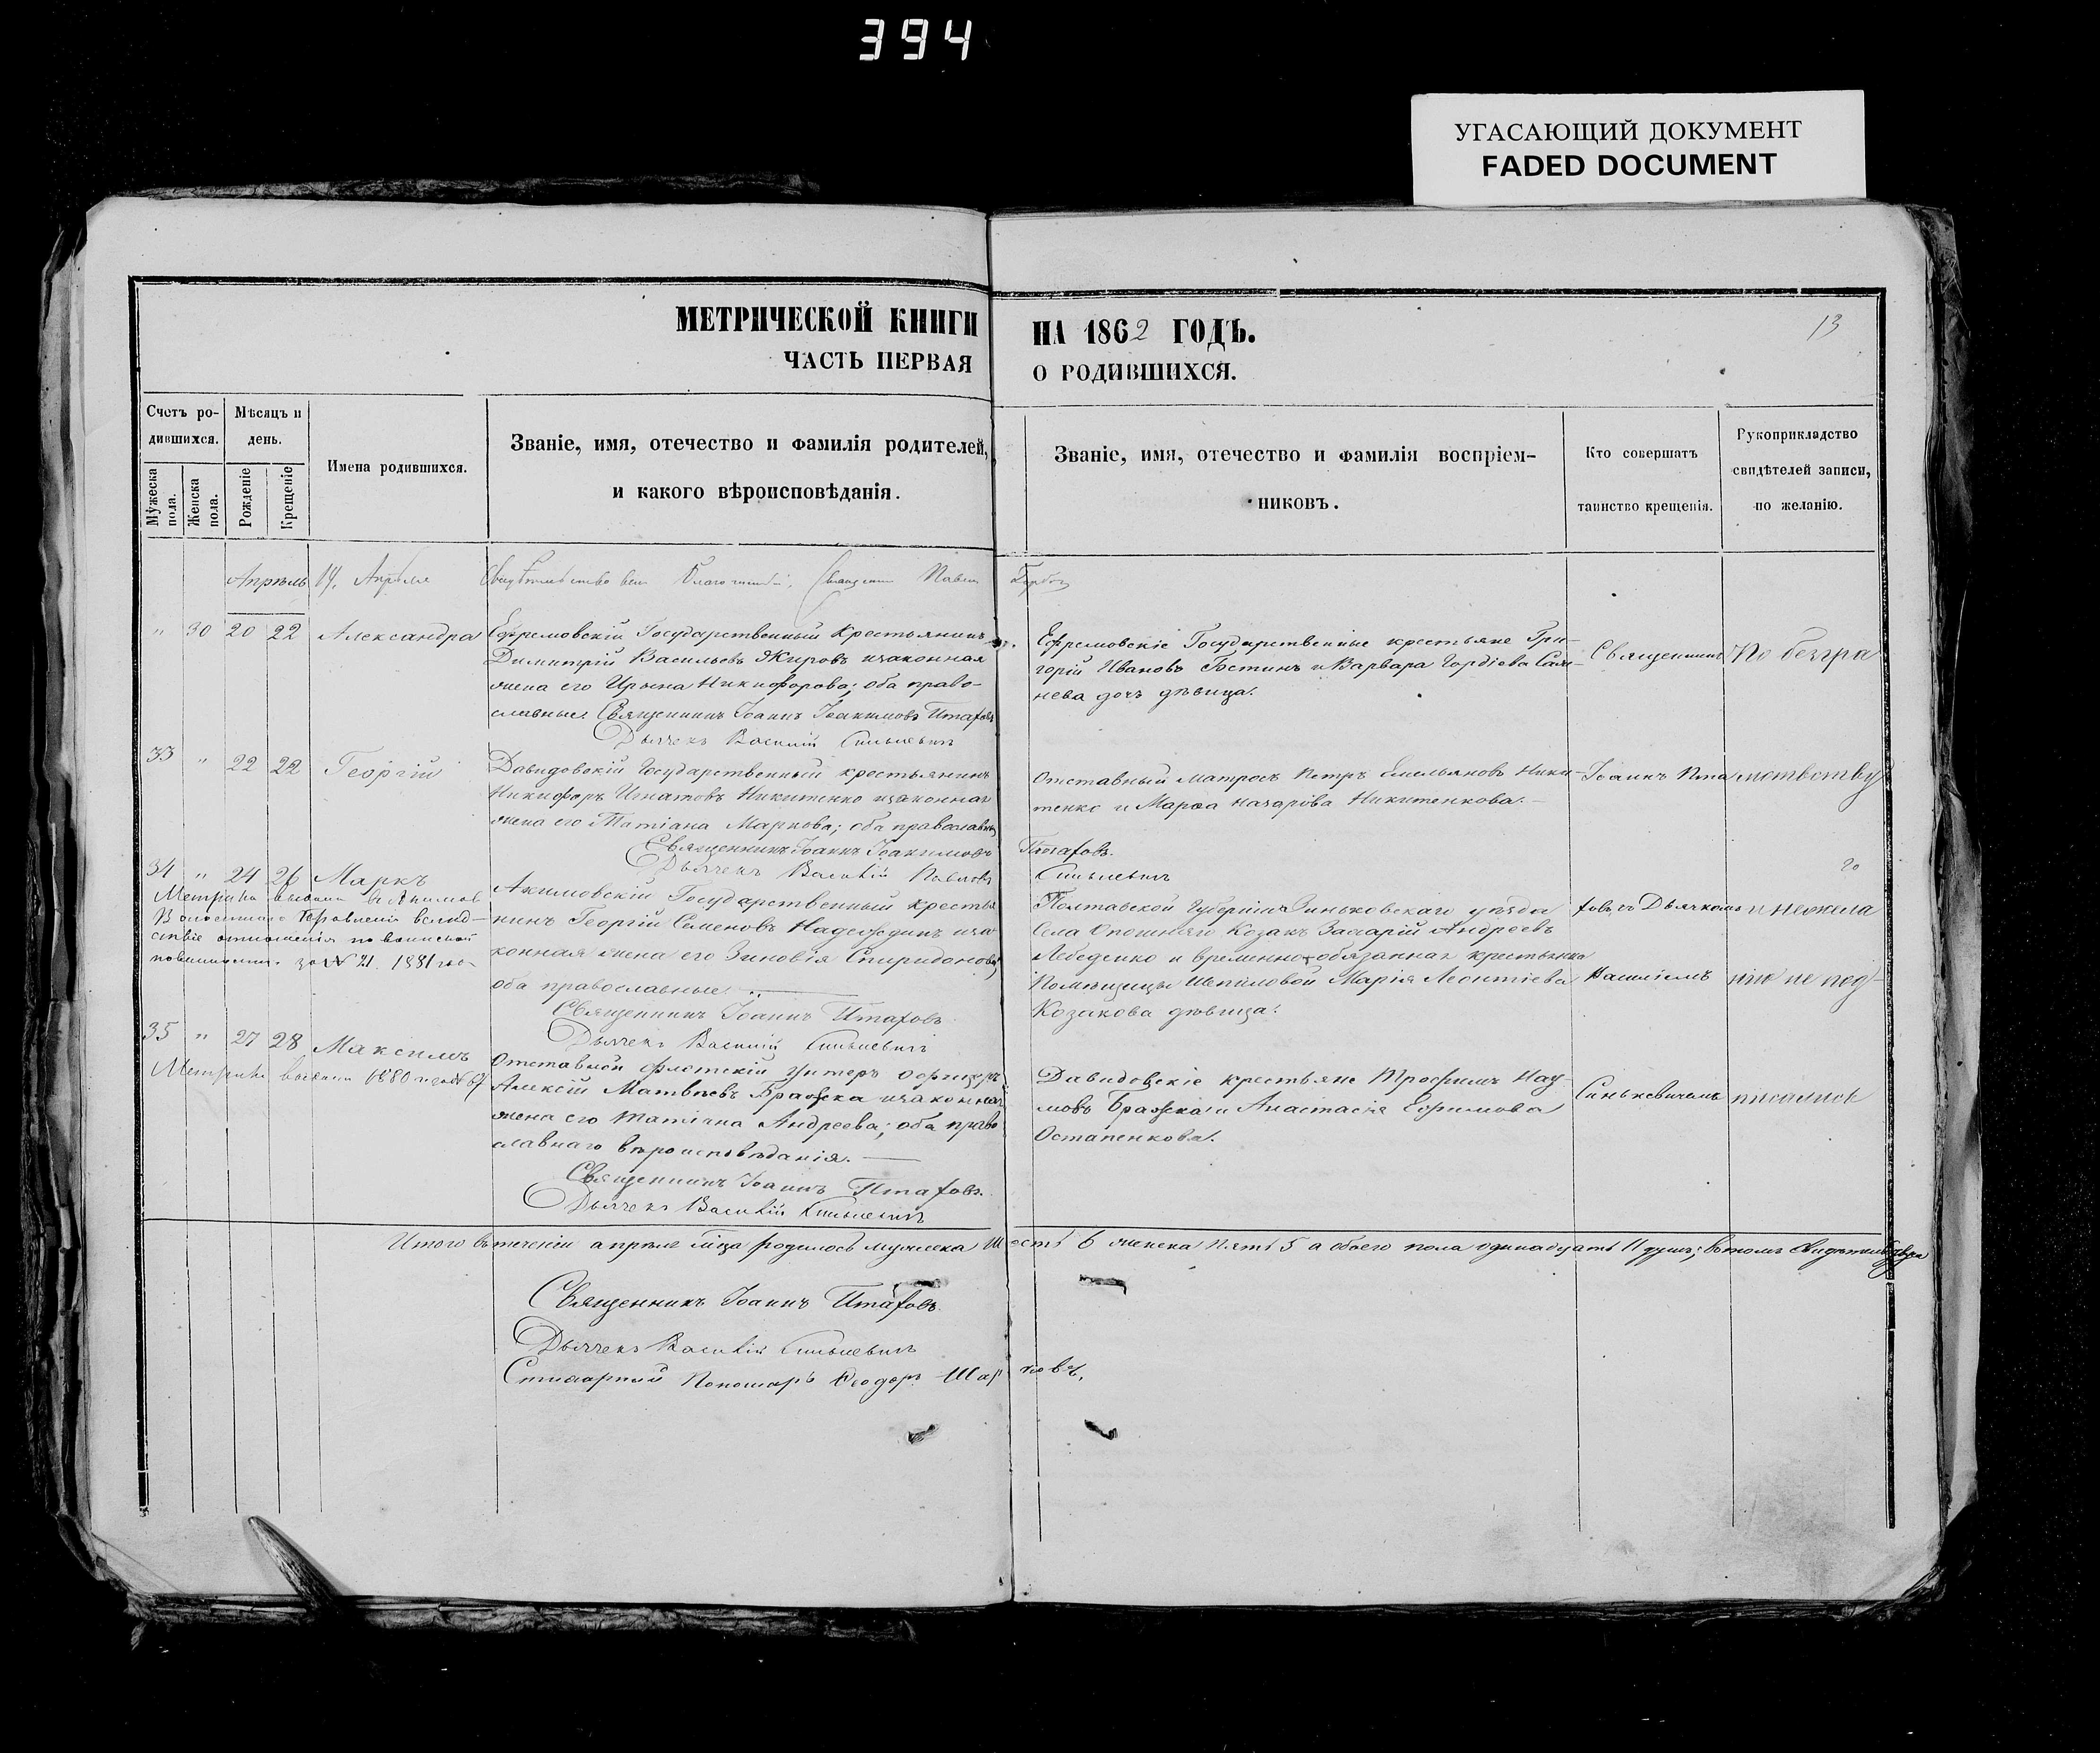 394
УГАСАЮЩИЙ ДОКУМЕНТ
FADED DOCUMENT
МЕТРИЧЕСКОЙ КНИГИ НА 1862 ГОДЪ.
13
ЧАСТЬ ПЕРВАЯ О РОДИВШИХСЯ.
Счетъ ро-
дившихся.
Мужеска пола.
Женска пола.
Мѣсяцъ и
день.
Рожденіе
Крещеніе
Имена родившихся.
Званіе, имя, отечество и фамилія родителей,
и какого вѣроисповѣданія.
Званіе, имя, отечество и фамилія воспріем-
никовъ.
Кто совершалъ
таинство крещенія.
Рукоприкладство
свидѣтелей записи,
по желанію.
Апрѣль
19. Апрѣля Благочинный, Священникъ Павелъ
" 30 20 22 Александра
Ефремовскій Государственный Крестьянинъ
Димитрій Васильевъ Жировъ изаконная
жена его Ирына Никифорова; оба право-
славные. Священникъ Іоаннъ Іоакимовъ Птаховъ
Дьячекъ Василій Синькевичъ
Ефремовскіе Государственные крестьяне Гри-
горій Ивановъ Гостинъ и Варвара Гордіева Сали-
нева дочь дѣвица.
Священникъ
По безгра
33 " 22 22 Георгій
Давидовскій Государственный крестьянинъ
Никифоръ Игнатовъ Никитенко изаконная
жена его Татіана Маркова; оба православные
Священникъ Іоаннъ Іоакимовъ Птаховъ.
Дьячекъ Василій Павловъ Синькевичъ
Отставный матросъ Петръ Емельяновъ Ники-
тенко и Марѳа Назарова Никитенкова.
Іоаннъ Пта
мотвству
34 " 24 26 Маркъ
Метрика выдана в Акимов
Волостнаго Правленія вслед-
ствіе отношенія по воинской
повинности за № 21. 1881 го
Акимовскій Государственный крестья
нинъ Георгій Семеновъ Надеждинъ иза
конная жена его Зиновія Спиридонова;
оба православные.
Священникъ Іоаннъ Птаховъ
Дьячекъ Василій Синькевичъ
Полтавской Губерніи Зиньковскаго уѣзда
Села Опошняго Козакъ Захарій Андреевъ
Лебеденко и временно-обязанная крестьянка
Помѣщицы Марія Леонтіева
Козакова дѣвица.
ховъ съ Дьячкомъ
Василіемъ
и нежела
нію не под-
35 " 27 28 Максимъ
Метрика выдана 1880 года № 67
Отставной флотскій унтеръ офицеръ
Алексій Матвѣевъ Бражка изаконная
жена его Татіана Андреева; оба право
славнаго вѣроисповѣданія.
Священникъ Іоаннъ Птаховъ.
Дьячекъ Василій Синькевичъ
Давидовскіе крестьяне Трофимъ Нау-
мовъ Бражка и Анастасія Ефимова
Остапенкова.
Синькевичемъ
писались
Итого втеченіи апрѣля мца родилось мужеска шесть 6 женска пять 5 а обоего пола одинадцать 11 душъ; вътомъ
Священникъ Іоаннъ Птаховъ.
Дьячекъ Василій Синькевичъ
Стихарный Пономарь Ѳеодоръ Шарковъ.